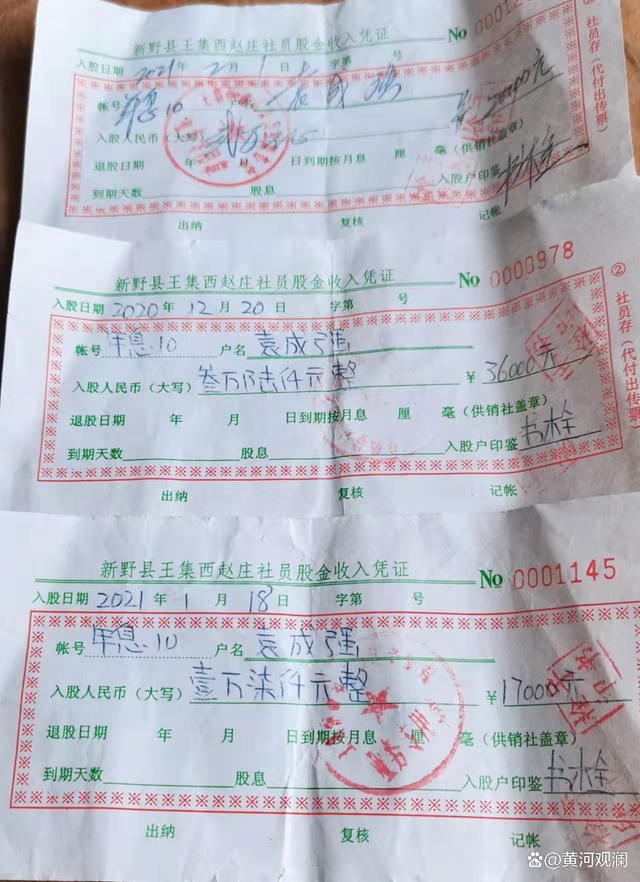 新野县王集西赵庄社员股金收入凭证 No 0001
入股日期 2021年 2月 1日 字第 号
帐号 单息10 户名 袁成强
入股人民币（大写） 贰万元 ¥ 20000元
退股日期 年 月 日到期按月息 厘 毫（供销社盖章）
到期天数 股息 入股户印鉴
出纳 复核 记帐
②社员存（代付出传票）
新野县王集西赵庄社员股金收入凭证 No 0000978
入股日期 2020年 12月 20日 字第 号
帐号 单息10 户名 袁成强
入股人民币（大写） 叁万陆仟元整 ¥ 36000元
退股日期 年 月 日到期按月息 厘 毫（供销社盖章）
到期天数 股息 入股户印鉴
出纳 复核 记帐
②社员存（代付出传票）
新野县王集西赵庄社员股金收入凭证 No 0001145
入股日期 2021年 1月 18日 字第 号
帐号 单息10 户名 袁成强
入股人民币（大写） 壹万柒仟元整 ¥ 17000元
退股日期 年 月 日到期按月息 厘 毫（供销社盖章）
到期天数 股息 入股户印鉴
出纳 复核 记帐
头条 @黄河观澜